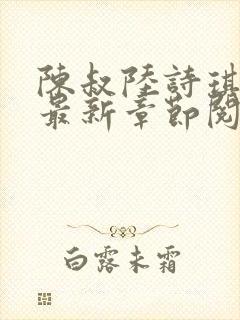 陳叔陸詩琪
最新章節閱
白露未霜